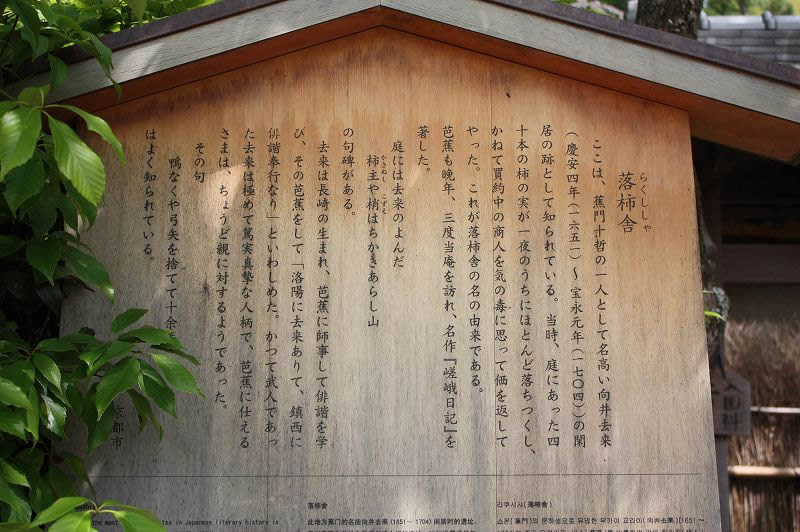 落柿舎
らくししゃ
ここは、蕉門十哲の一人として名高い向井去来
(慶安四年(一六五一)~宝永元年(一七〇四))の閑
居の跡として知られている。当時、庭にあった四
十本の柿の実が一夜のうちにほとんど落ちつくし、
かねて買約中の商人を気の毒に思って価を返して
やった。これが落柿舎の名の由来である。
芭蕉も晩年、三度当庵を訪れ、名作『嵯峨日記』を
著した。
庭には去来のよんだ
柿主や梢はちかきあらし山
かきぬし こずえ
の句碑がある。
去来は長崎の生まれ、芭蕉に師事して俳諧を学
び、その芭蕉をして「洛陽に去来ありて、鎮西に
俳諧奉行なり」といわしめた。かつて武人であっ
た去来は極めて篤実真摯な人柄で、芭蕉に仕える
さまは、ちょうど親に対するようであった。
その句
鴨なくや弓矢を捨てて十余年
はよく知られている。
京都市
the most in Japanese literary history is
落柿舍
此地为蕉门的名徒向井去来(1651~1704)闲居时的遗址。
라쿠시샤(落柿舎)